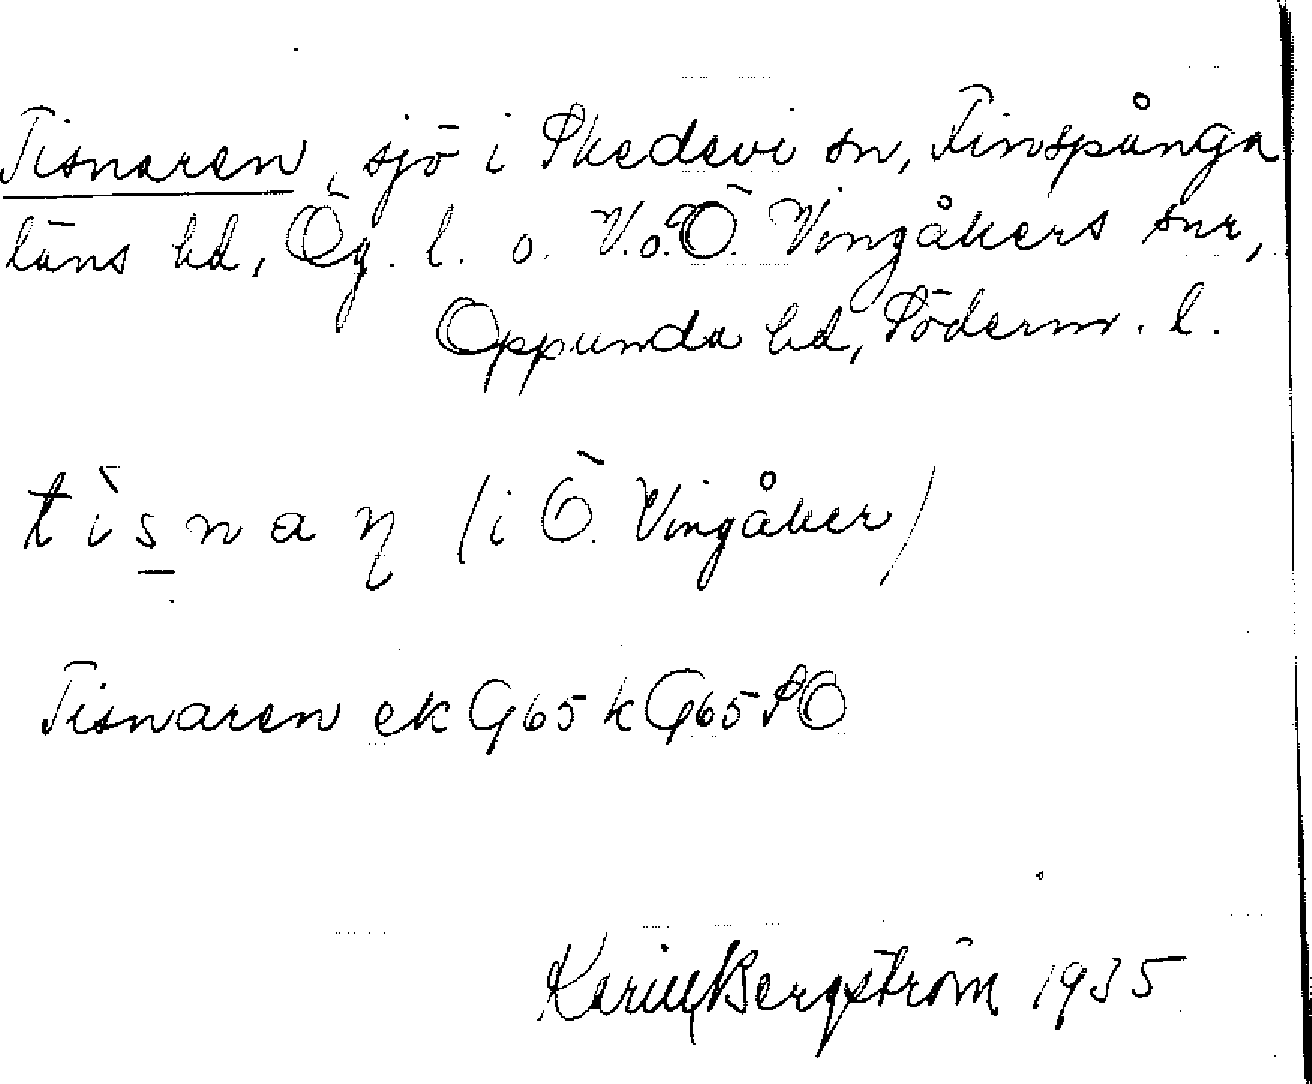 Tisnaren, sjö i Skedevi sn, Finspånga
läns hd, Ög. l. o. V. o. Ö. Vingåkers snr,
Oppunda hd, Söderm. l.
tìsnaη (i Ö. Vingåker)
Tisnaren ek G65 k G65 SO
Karin Bergström 1935